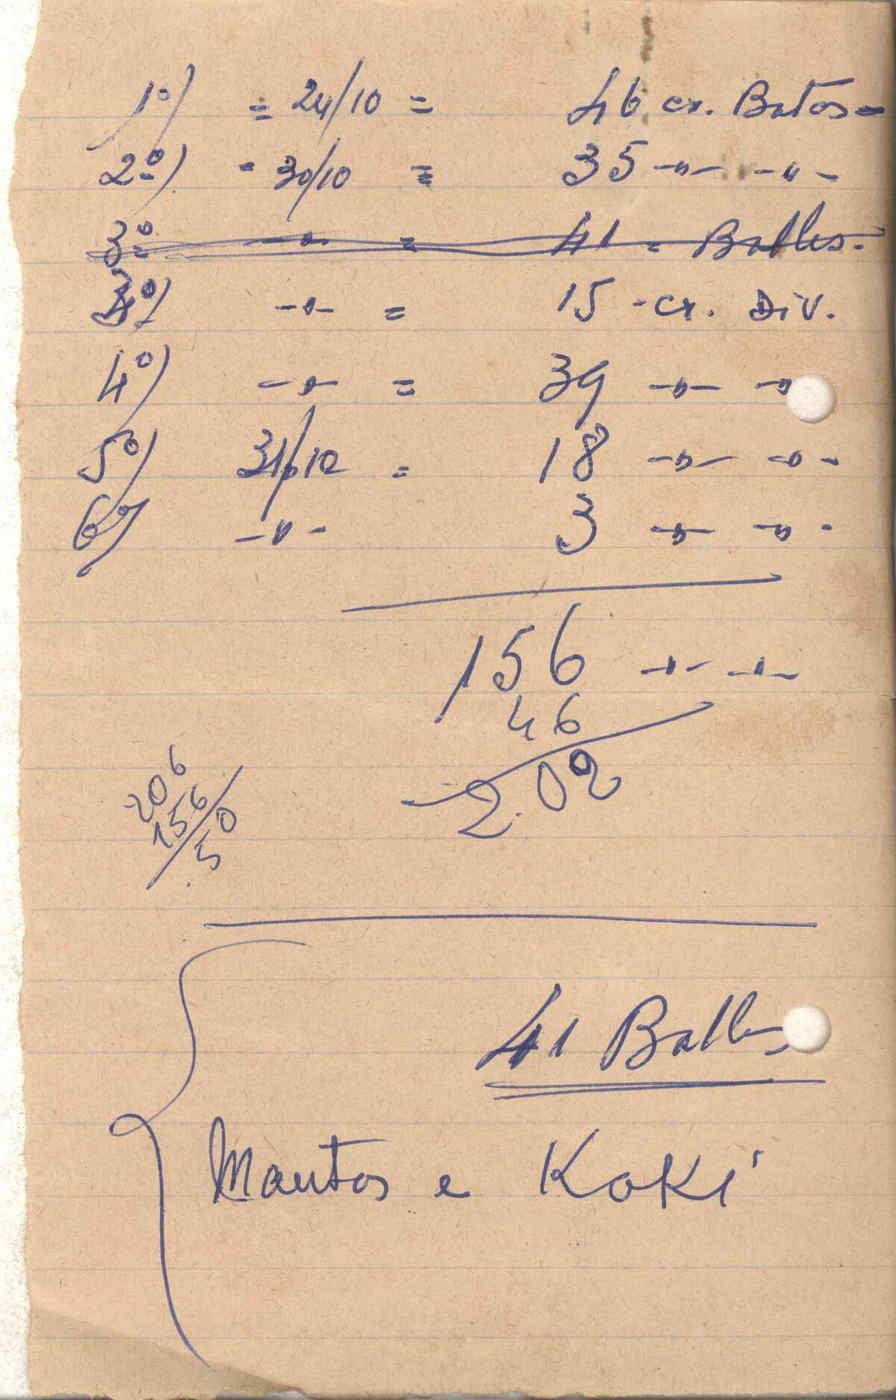 1º) = 24/10 = 46 cx. Batos =
2º) - 30/10 = 35 -"- -"-
3º -"- = 41 = Balles.
3º) -"- = 15 - cx. Div.
4º) -"- = 39 -"- -"-
5º) 31/10 = 18 -"- -"-
6º) -"- 3 -"- -"-
156 -"- -"-
46
202
206
156
50
41 Balles
Mantos e Koki